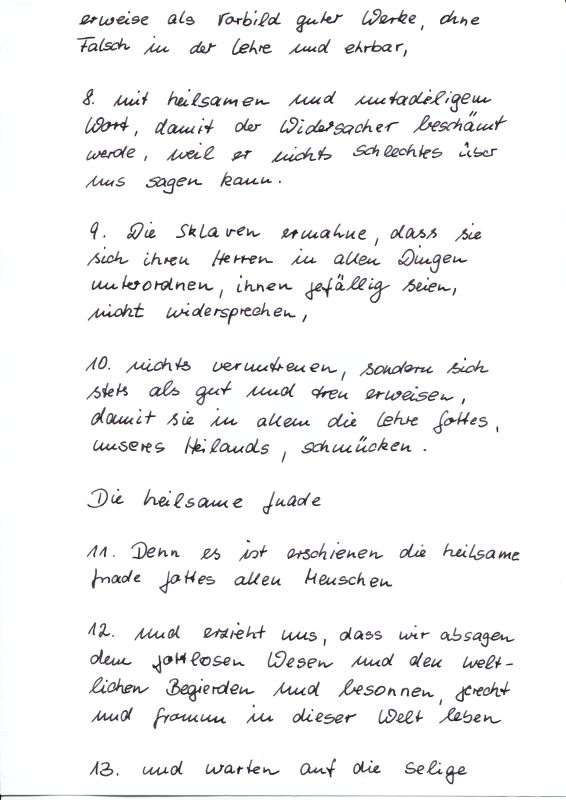 erweise als Vorbild guter Werke, ohne
Falsch in der Lehre und ehrbar,
8. mit heilsamen und untadeligem
Wort, damit der Widersacher beschämt
werde, weil er nichts Schlechtes über
uns sagen kann.
9. Die Sklaven ermahne, dass sie
sich ihren Herren in allen Dingen
unterordnen, ihnen gefällig seien,
nicht widersprechen,
10. nichts veruntreuen, sondern sich
stets als gut und treu erweisen,
damit sie in allem die Lehre Gottes,
unseres Heilands, schmücken.
Die heilsame Gnade
11. Denn es ist erschienen die heilsame
Gnade Gottes allen Menschen
12. und erzieht uns, dass wir absagen
dem gottlosen Wesen und den welt-
lichen Begierden und besonnen, gerecht
und fromm in dieser Welt leben
13. und warten auf die selige